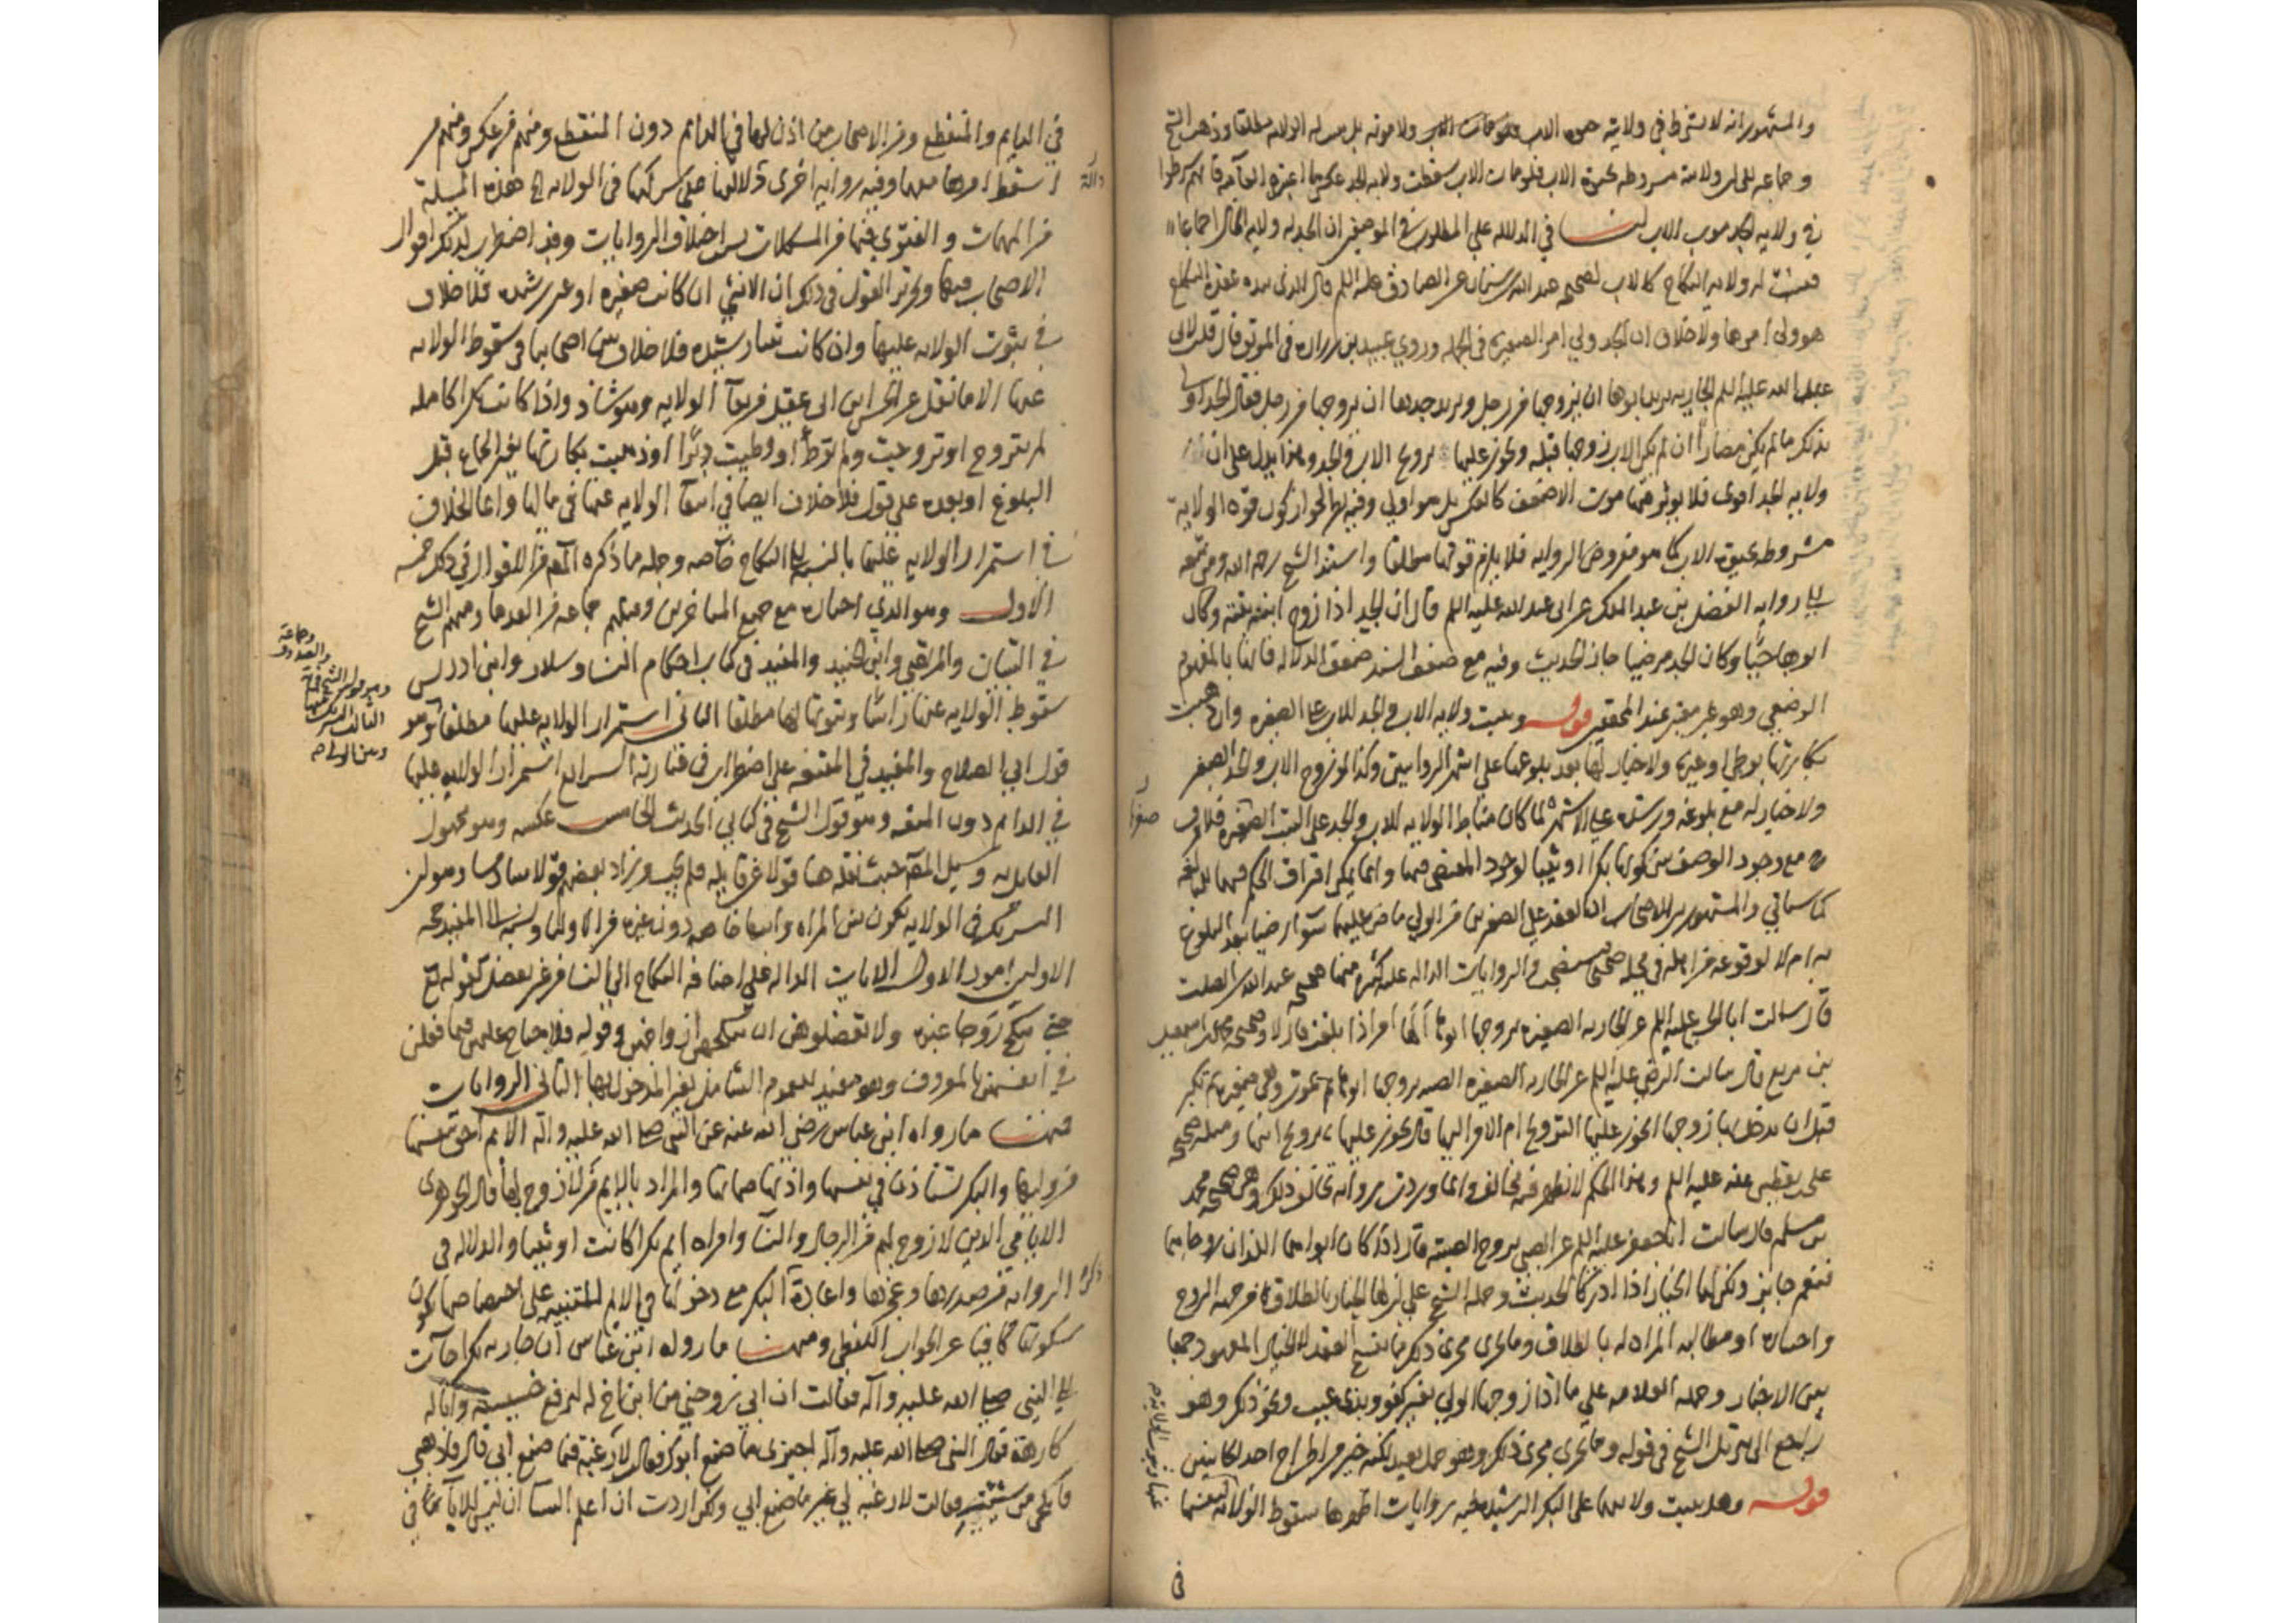 والمشهور انه لا يشترط في ولايته حيوة الاب ولا موته بل له الولاية مطلقا وذهب الشيخ
وجماعة الى ان ولايته مشروطة بحيوة الاب فلو مات الاب سقطت ولاية الجد
في ولاية الجد موت الاب لنا في الدلالة على المطلوب في الموضعين ان الجد له ولاية المال اجماعا
فيثبت له ولاية النكاح كالاب لصحيحة عبد الله بن سنان عن الصادق عليه السلم قال الذي بيده عقدة النكاح
هو ولي امرها ولا خلاف ان الجد ولي امر الصغيرة في الجملة وروى عبيد بن زرارة في الموثق قال قلت لابي
عبد الله عليه السلم الجارية يريد ابوها ان يزوجها من رجل ويريد جدها ان يزوجها من رجل فقال الجد اولى
بذلك ما لم يكن مضارا ان لم يكن الاب زوجها قبله ويجوز عليها تزويج الاب والجد وهذا يدل على ان
ولاية الجد اقوى فلا يؤثر فيها موت الاضعف كالعكس بل هو اولى وفيه نظر لجواز كون قوة الولاية
مشروطة بحيوة الاب كما هو مفروض الرواية فلا يلزم قوتها مطلقا واستند الشيخ رحمه الله ومن تبعه
الى رواية الفضل بن عبد الملك عن ابي عبد الله عليه السلم قال ان الجد اذا زوج ابنة ابنه وكان
ابوها حيا وكان الجد مرضيا جاز الحديث وفيه مع ضعف السند ضعف الدلالة فانها بالمفهوم
الوصفي وهو غير معتبر عند المحققين قوله ويثبت ولاية الاب والجد للاب على الصغيرة وان ذهبت
بكارتها بوطئ او غيره ولا خيار لها بعد بلوغها على اشهر الروايتين وكذا لو زوج الاب والجد الصغير
ولا خيار له مع بلوغه ورشده على الاشهر لما كان مناط الولاية للاب والجد على البنت الصغر فلا فرق
مع وجود الوصف بين كونها بكرا او ثيبا لوجود المقتضي فيهما وانما يمكن افتراق الحكم فيهما للبالغة
كما سيأتي والمشهور بين الاصحاب ان العقد على الصغيرين من الولي ماض عليهما سواء رضيا بعد البلوغ
به ام لا لوقوعه من اهله في محله صحيحا فيستصحب والروايات الدالة عليه كثيرة منها صحيحة عبد الله بن الصلت
قال سالت ابا الحسن عليه السلم عن الجارية الصغيرة يزوجها ابوها ألها امر اذا بلغت قال لا وصحيحة محمد بن اسمعيل
بن بزيع قال سالت الرضا عليه السلم عن الجارية الصغيرة يزوجها ابوها ثم يموت وهي صغيرة ثم تكبر
قبل ان يدخل بها زوجها ايجوز عليها التزويج ام الامر اليها قال يجوز عليها تزويج ابيها ومثله صحيحة
علي بن يقطين عنه عليه السلم وهذا الحكم لا يظهر فيه مخالف وانما وردت رواية تخالف ذلك وهي صحيحة محمد
بن مسلم قال سالت ابا جعفر عليه السلم عن الصبي يزوج الصبية قال اذا كان ابواهما اللذان زوجاهما
فنعم جايز ولكن لهما الخيار اذا ادركا الحديث وحمله الشيخ على ان لهما الخيار بالطلاق من جهة الزوج
واختياره او مطالبة المراة له بالطلاق وما يجرى مجرى ذلك مما يفسخ العقد لا الخيار المعهود جمعا
بين الاخبار وحمله العلامة على ما اذا زوجها الولي بغير كفو وبذي عيب ونحو ذلك وهو
راجع الى تنزيل الشيخ في قوله وما يجري مجرى ذلك وهو حمل بعيد لكنه خير من اطراح احد الجانبين
قوله وهل يثبت ولايتهما على البكر الرشيدة فيه روايات اظهرها سقوط الولاية
عنها وثبوت الولاية
في
في الدايم والمنقطع ومن الاصحاب من اذن لها في الدايم دون المنقطع ومنهم من عكس ومنهم من
اسقط امرها معهما وفيه رواية اخرى دلالتها على شركتهما في الولاية هذه المسئلة
من المهمات والفتوى فيها من المشكلات بسبب اختلاف الروايات وقد اضطرب لذلك اقوال
الاصحاب فيها وتحرير القول في ذلك ان الانثى ان كانت صغيرة او غير رشيدة فلا خلاف
في ثبوت الولاية عليها وان كانت ثيبا رشيدة فلا خلاف بين اصحابنا في سقوط الولاية
عنها الا ما نقل عن الحسن ابن ابي عقيل من بقاء الولاية وهو شاذ واذا كانت بكرا كاملة
لم تتزوج او تزوجت ولم توطأ او وطيت دبرا او ذهبت بكارتها بغير الجماع قبل
البلوغ او بعده على قول فلا خلاف ايضا في انتفاء الولاية عنها في مالها وانما الخلاف
في استمرار الولاية عليها بالنسبة الى النكاح خاصة وجملة ما ذكره المصنف من الاقوال في ذلك خمسة
الاول وهو الذي اختاره مع جميع المتاخرين وقبلهم جماعة من القدماء ومنهم الشيخ
في التبيان والمرتضى وابن الجنيد والمفيد في كتاب احكام النساء وسلار وابن ادريس
سقوط الولاية عنها راسا وثبوتها لها مطلقا الثاني استمرار الولاية عليها مطلقا وهو
قول ابي الصلاح والمفيد في المقنعة على اضطراب في عبارته الرابع استمرار الولاية عليها
في الدايم دون المتعة وهو قول الشيخ في كتابي الحديث الخامس عكسه وهو مجهول
القايل به وسئل المصنف حيث نقله هنا قولا عن قايله فلم يجب وزاد بعضهم قولا سادسا وهو ان
التشريك في الولاية يكون بين المراة وابيها خاصة دون غيره من الاولياء ونسبه الى المفيد حجة
الاولين امور الاول الايات الدالة على اضافة النكاح الى النساء من غير تفصيل كقوله تع
حتى تنكح زوجا غيره ولا تعضلوهن ان ينكحن ازواجهن وقوله فلا جناح عليهن فيما فعلن
في انفسهن بالمعروف وهو مفيد للعموم الشامل لغير المدخول بها الثاني الروايات
فمنها ما رواه ابن عباس رضي الله عنه عن النبي صلى الله عليه وآله الايم احق بنفسها
من وليها والبكر تستاذن في نفسها واذنها صماتها والمراد بالايم من لا زوج لها قال الجوهرى
الايامى الذين لا زوج لهم من الرجال والنساء وامراة ايم بكرا كانت او ثيبا والدلالة في
الرواية من صدرها وعجزها واعادة البكر مع دخولها في الايم للتنبيه على اختصاصها بكون
سكوتها كافيا عن الجواب اللفظي ومنها ما رواه ابن عباس ان جارية بكرا جاءت
الى النبي صلى الله عليه وآله فقالت ان ابي زوجني من ابن اخ له ليرفع خسيسته وانا له
كارهة فقال النبي صلى الله عليه وآله اجيزى ما صنع ابوك فقالت لا رغبة فيما صنع ابي قال فاذهبي
فانكحي من شئت فقالت لا رغبة لي غير ما صنع ابي ولكن اردت ان اعلم النساء ان ليس للاباء في